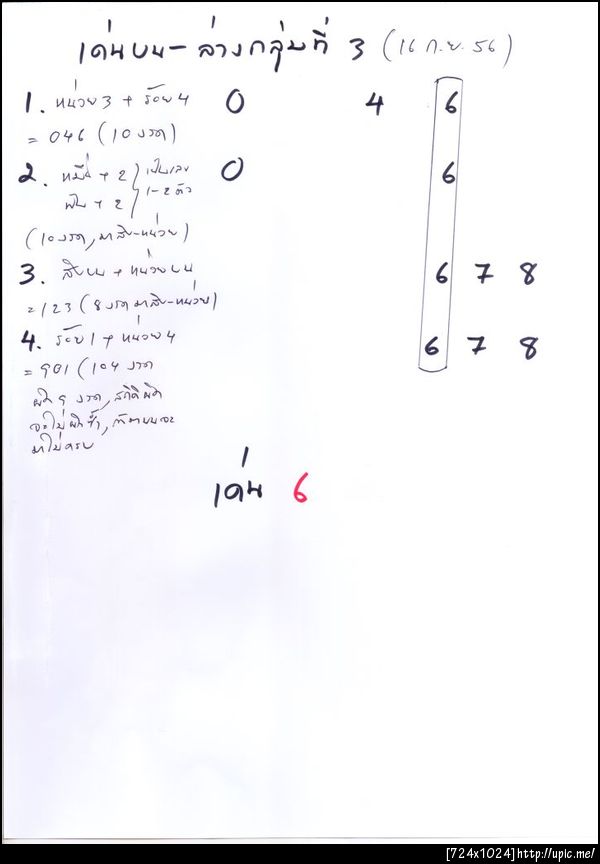 เด่นบน-ล่างกลุ่มที่ 3 (16 ก.ย. 56)
1. หน่วย 3 + ร้อย 4 0 4 6
= 046 (10 งวด)
2. หมื่น + 2 เป็นเลข 0 6
พัน + 2 1-2 ตัว
(10 งวด, มาสิบ-หน่วย)
3. สิบบน + หน่วยบน 6 7 8
= 123 (8 งวด มาสิบ-หน่วย)
4. ร้อย 1 + หน่วย 4 6 7 8
= 901 (104 งวด
ผิด 9 งวด, สถิติผิด
จะไม่ผิดซ้ำ,
มาไม่ครบ
เด่น 6
[724x1024]http://upic.me/